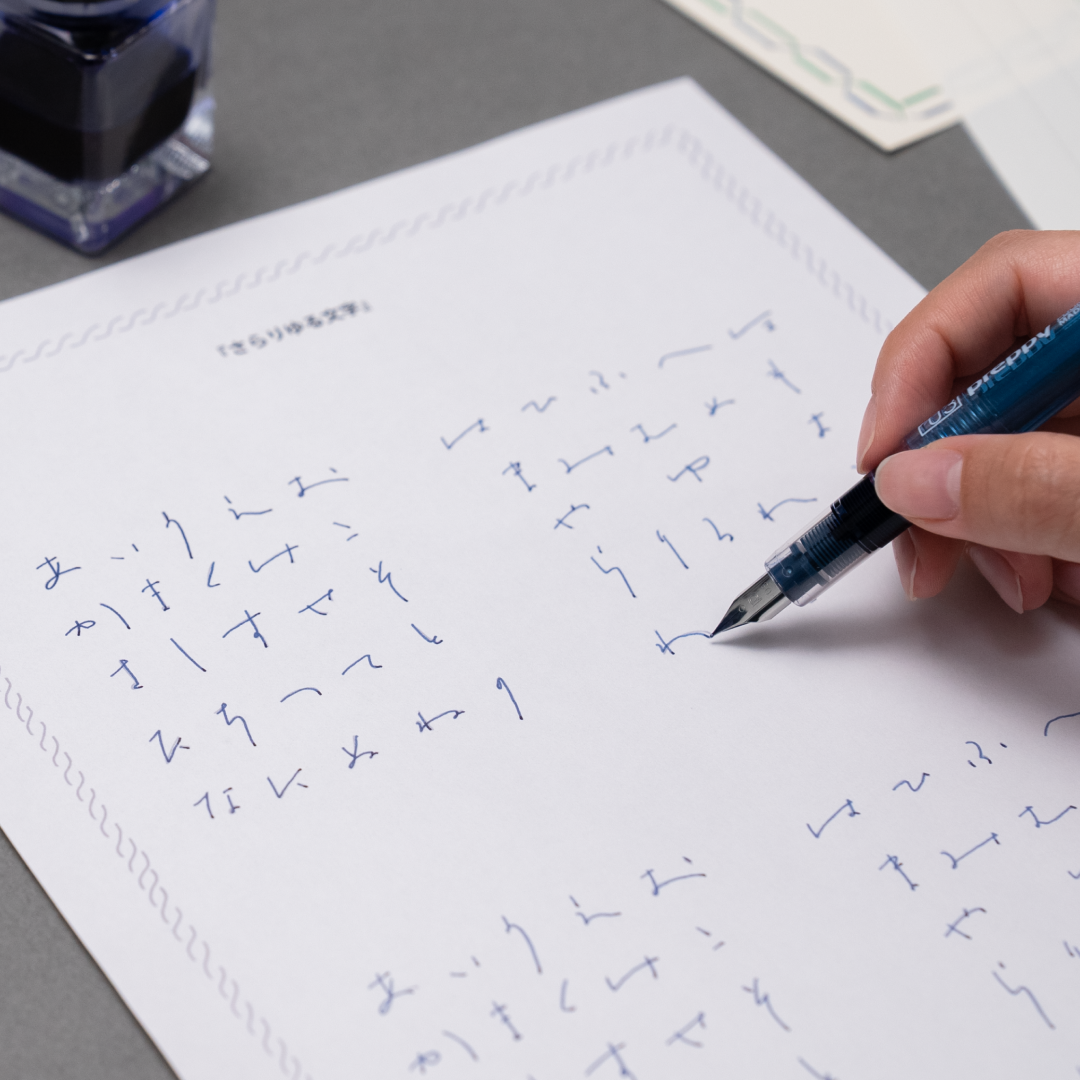 『さらりゆる文字』
あいうえお
かきくけこ
さしすせそ
たちつてと
なにぬねの
はひふへほ
まみむめも
やゆよ
らりるれ
わ
あいうえお
かきくけこ
すせそ
はひふへ
まみむ
や
ら
03 preppy